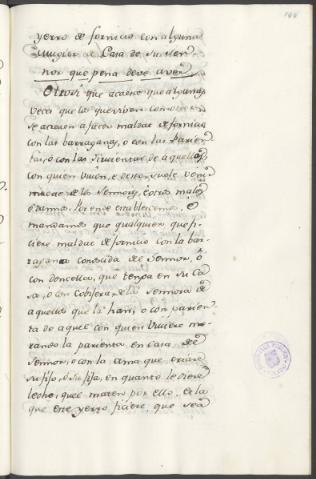 yerro de fornicio con alguna
muger de Casa de su Sen-
nor que pena deve aver
Otrosi que acaece que algunas
veces que los que viven con otros
se atreven a facer maldat de fornicio
con las barraganas, o con las Parien-
tas, o con las sirvientas de aquellos,
con quien viven, e desto suele venir
muertes de los Sennores, e otros males
e dannos. Porende establecemos, e
mandamos que qualquier que fi-
ciere maldat de fornicio con la bar-
ragana conoscida del Sennor, o
con doncella, que tenga en su Ca-
sa, o con Cobijera de la Sennora de
aquellos que la han, o con parien-
ta de aquel con quien viviere mo-
rando la parienta en casa del
Sennor, o con la ama que criare
su fijo, o su fija, en quanto le diere
leche, quel maten por ello. E la
que este yerro ficiere, que sea